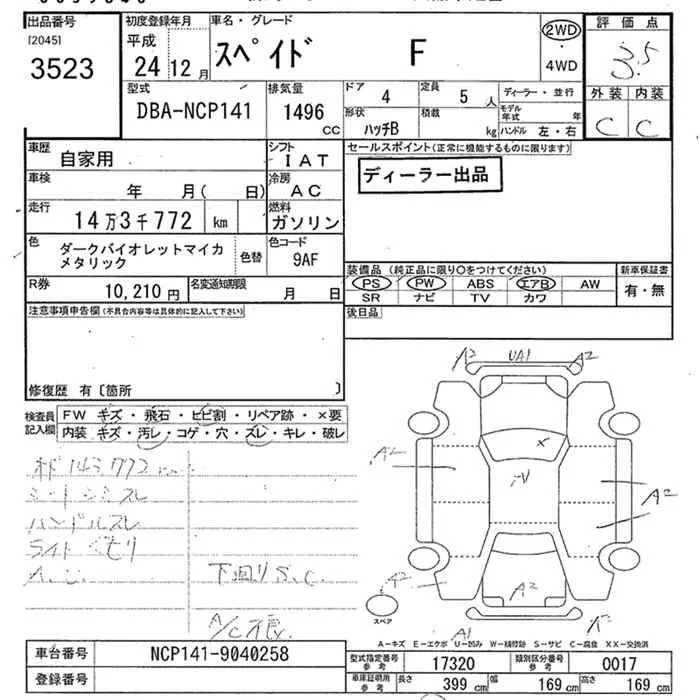 出品番号
[2045]
3523
初度登録年月
平成
24 12 月
車名・グレード
スペイド F
2WD
・
4WD
評価点
3.5
外装 内装
C C
型式
DBA-NCP141
排気量
1496
CC
ドア
4
定員
5 人
形状
ハッチB
積載
kg
ディーラー・並行
モデル年式 年
ハンドル 左・右
車歴
自家用
シフト
IAT
車検
年 月( 日)
冷房
AC
走行
14万3千772 km
燃料
ガソリン
色
ダークバイオレットマイカ
メタリック
色替
色コード
9AF
R券
10,210 円
名変通知期限
月 日
セールスポイント(正常に機能するものに限ります)
ディーラー出品
装備品 (純正品に限り○をつけてください)
PS PW ABS エアB AW
SR ナビ TV カワ
新車保証書
有・無
後日品
注意事項申告欄(不具合内容等は具体的に記入して下さい)
修復歴 有〔箇所 〕
検査員
記入欄
FW キズ・飛石・ヒビ割・リペア跡・×要
内装 キズ・汚レ・コゲ・穴・スレ・キレ・破レ
143772
シートシミスレ
ハンドルスレ
ライトくもり
A.U.
下回りS.C.
A2 UA1 A2
A2
A2
A2
A2
A1
スペア
A-キズ E-エクボ U-凹み W-補修跡 S-サビ C-腐食 XX-交換済
車台番号
NCP141-9040258
登録番号
型式指定番号
参考
17320
類別区分番号
参考
0017
車庫証明用
参考
長さ
399 cm
幅
169 cm
高さ
169 cm